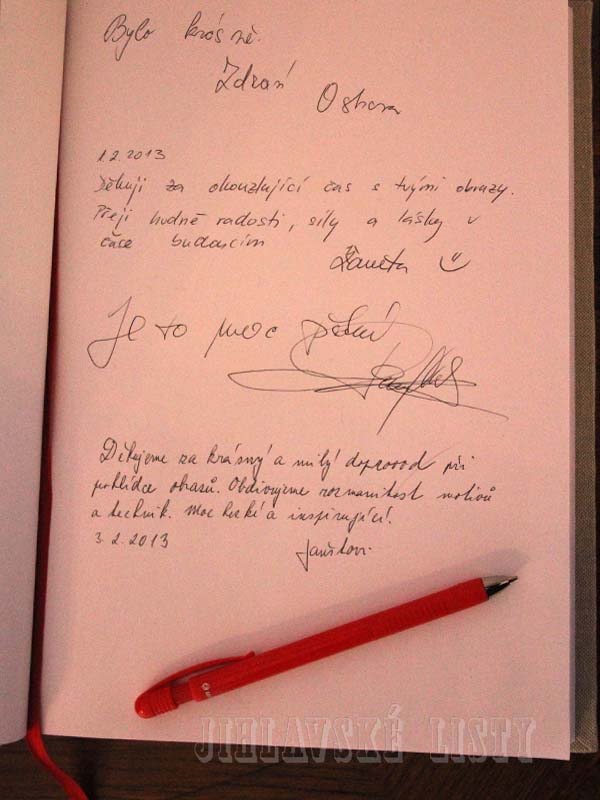 Bylo krásně.
Zdraví
1.2.2013
Děkuji za okouzlující čas s tvými obrazy.
Přeji hodně radosti, síly a lásky v
čase budoucím
Žaneta
Je to moc pěkné
Děkujeme za krásný a milý doprovod při
prohlídce obrazů. Obdivujeme rozmanitost motivů
a technik. Moc hezké a inspirující!
3.2.2013
JIHLAVSKÉ LISTY